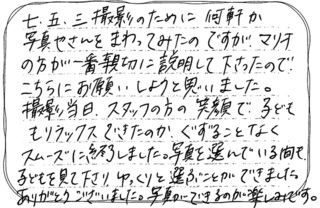 七、五、三撮影のために何軒か
写真やさんをまわってみたのですが、マリオ
の方が一番親切に説明して下さったので、
こちらにお願いしようと思いました。
撮影当日、スタッフの方の笑顔で、子ども
もリラックスできたのか、ぐずることなく
スムーズに終了しました。写真を選んでいる間も、
子どもを見て下さり、ゆっくりと選ぶことができました。
ありがとうございました。写真ができるのが楽しみです。